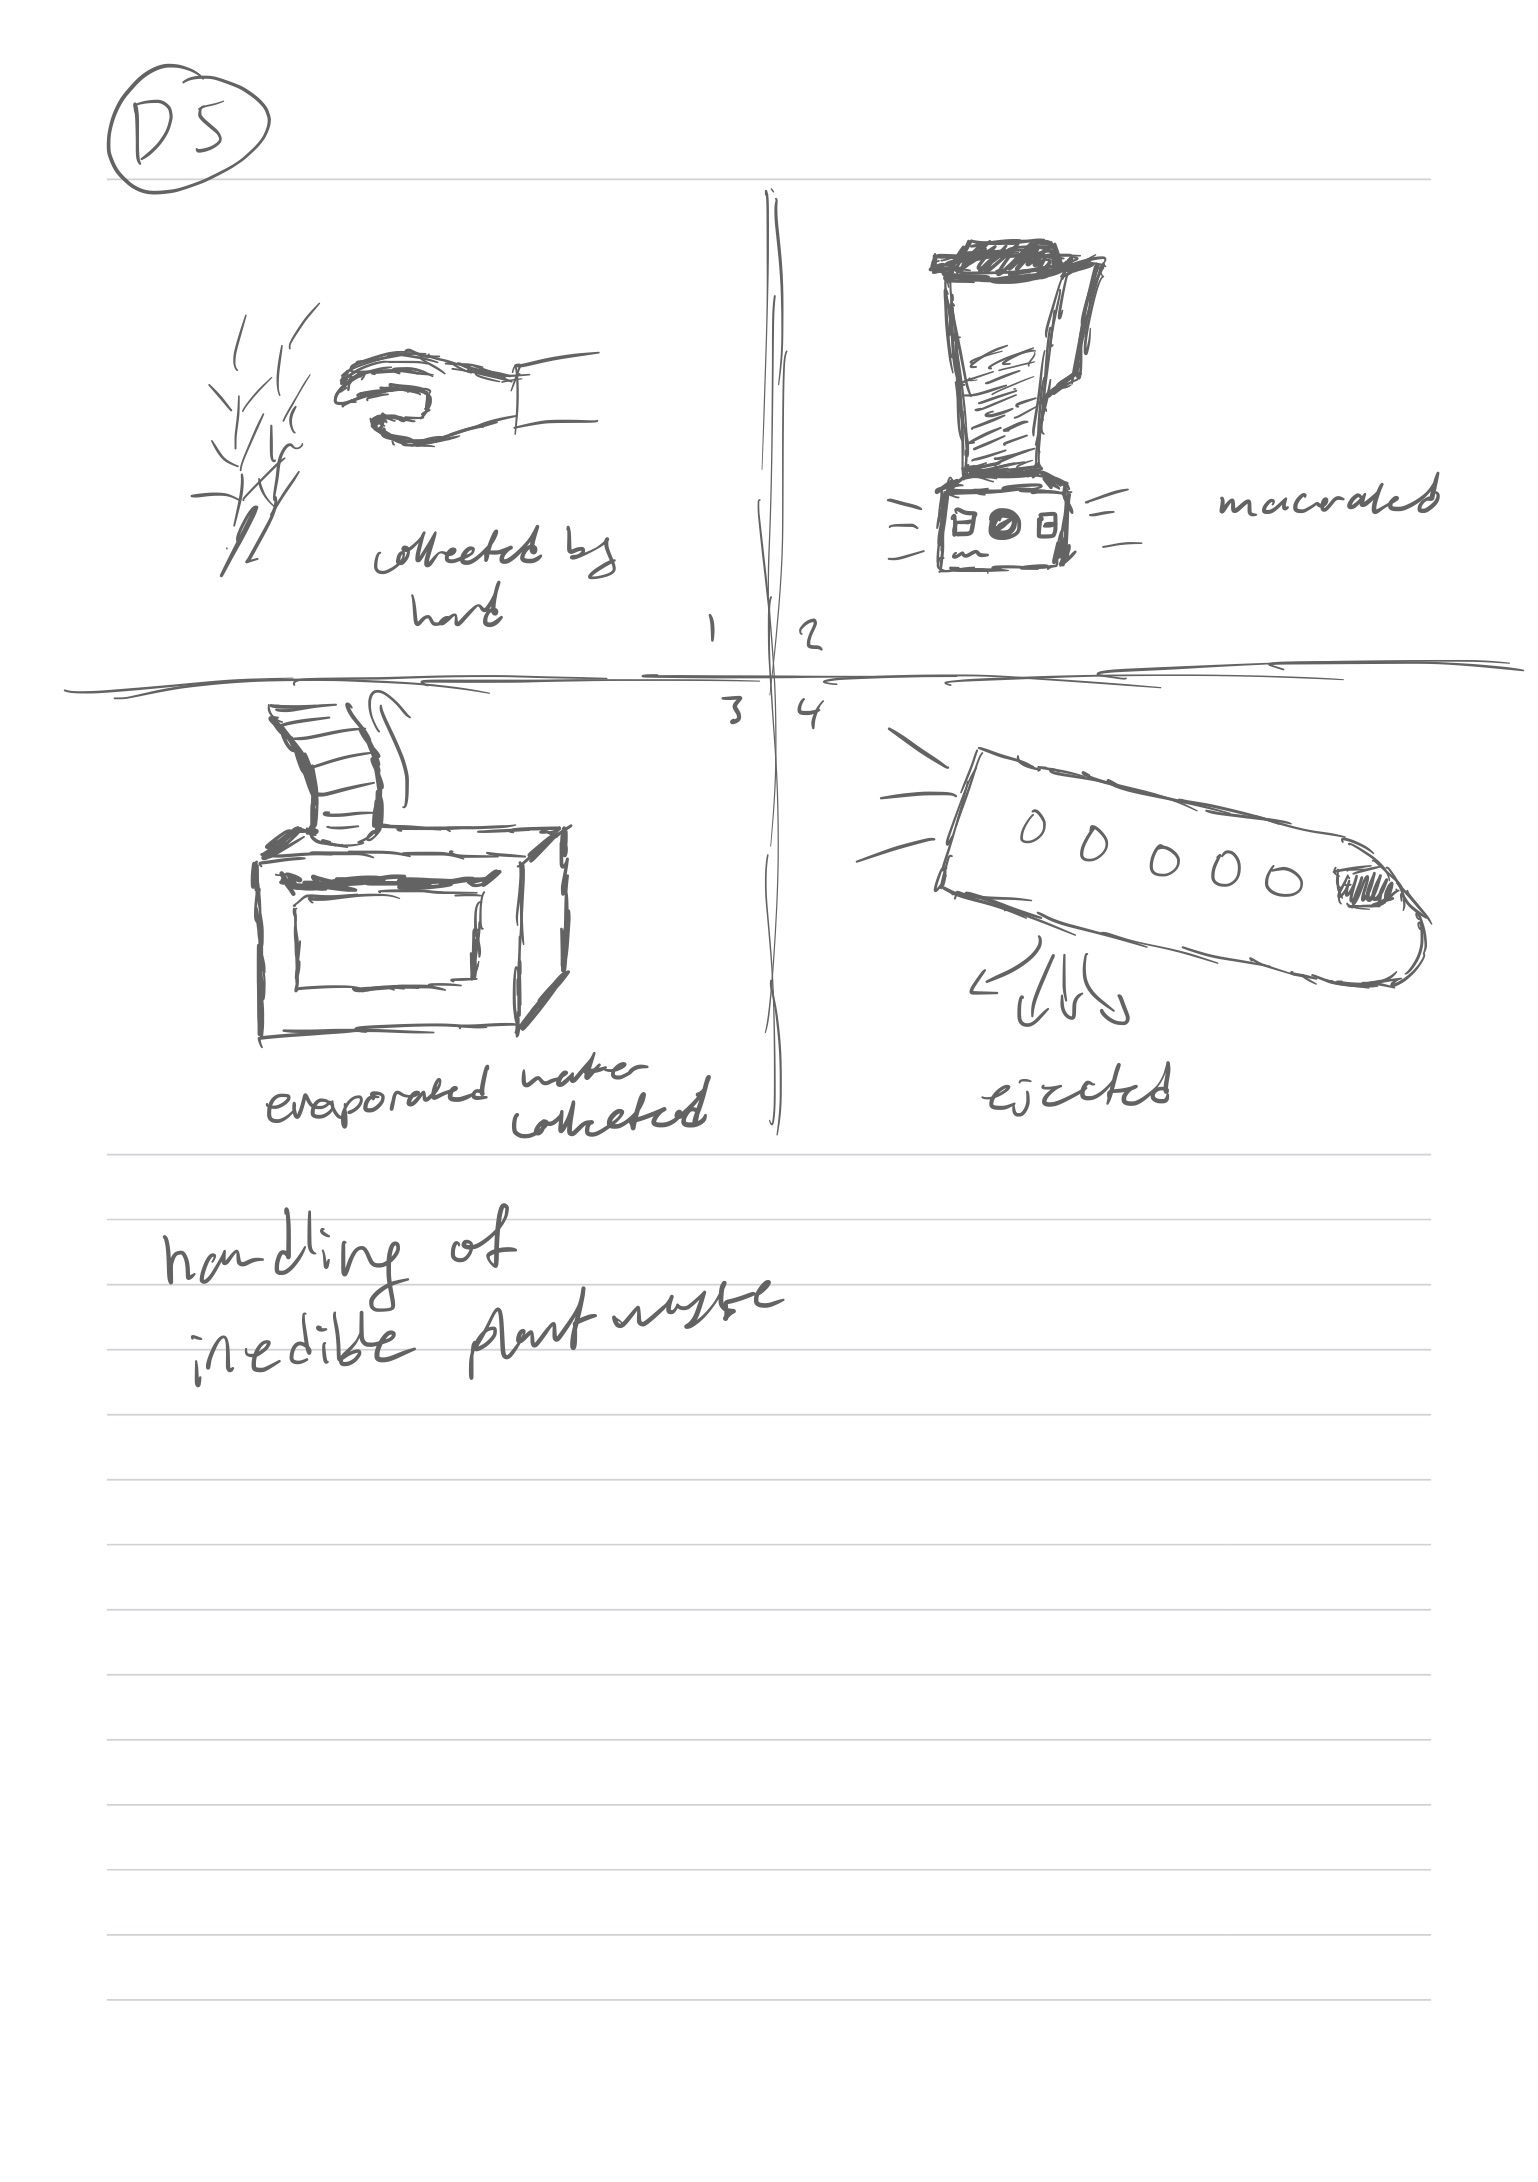 D5
collected by
hand
1
2
macerated
3
4
evaporated water
collected
ejected
handling of
inedible plant waste